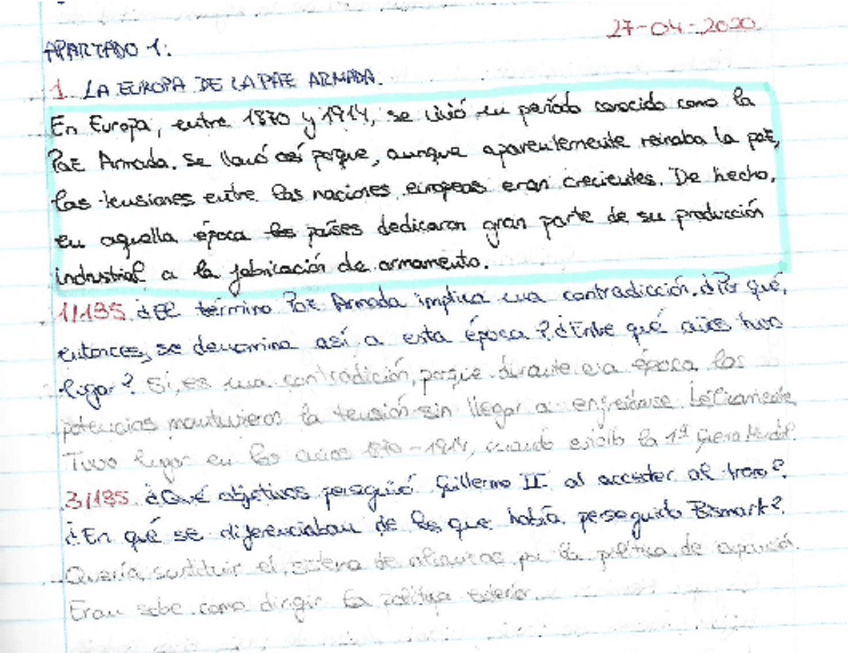 27-04-2020
APARTADO 1:
1. LA EUROPA DE LA PAZ ARMADA.
En Europa, entre 1870 y 1914, se vivió un período conocido como la
Paz Armada. Se llamó así porque, aunque aparentemente reinaba la paz,
las tensiones entre las naciones europeas eran crecientes. De hecho,
en aquella época los países dedicaron gran parte de su producción
industrial a la fabricación de armamento.
1/185 ¿El término Paz Armada implica una contradicción. ¿Por qué,
entonces, se denomina así a esta época? ¿Entre qué años tuvo
lugar? Sí, es una contradición, porque durante esa época las
potencias mantuvieros la tensión sin llegar a enfrentarse bélicamente.
Tuvo lugar en los años 870-1914, cuando la 1ª Guerra
3/185 ¿Qué objetivos persiguió Guillermo II al acceder al trono?
¿En qué se diferenciaban de los que había perseguido Bismark?
Quería sustituir el sistema de alianzas por la política de expansión.
Eran sobe como dirigir la política exterior.